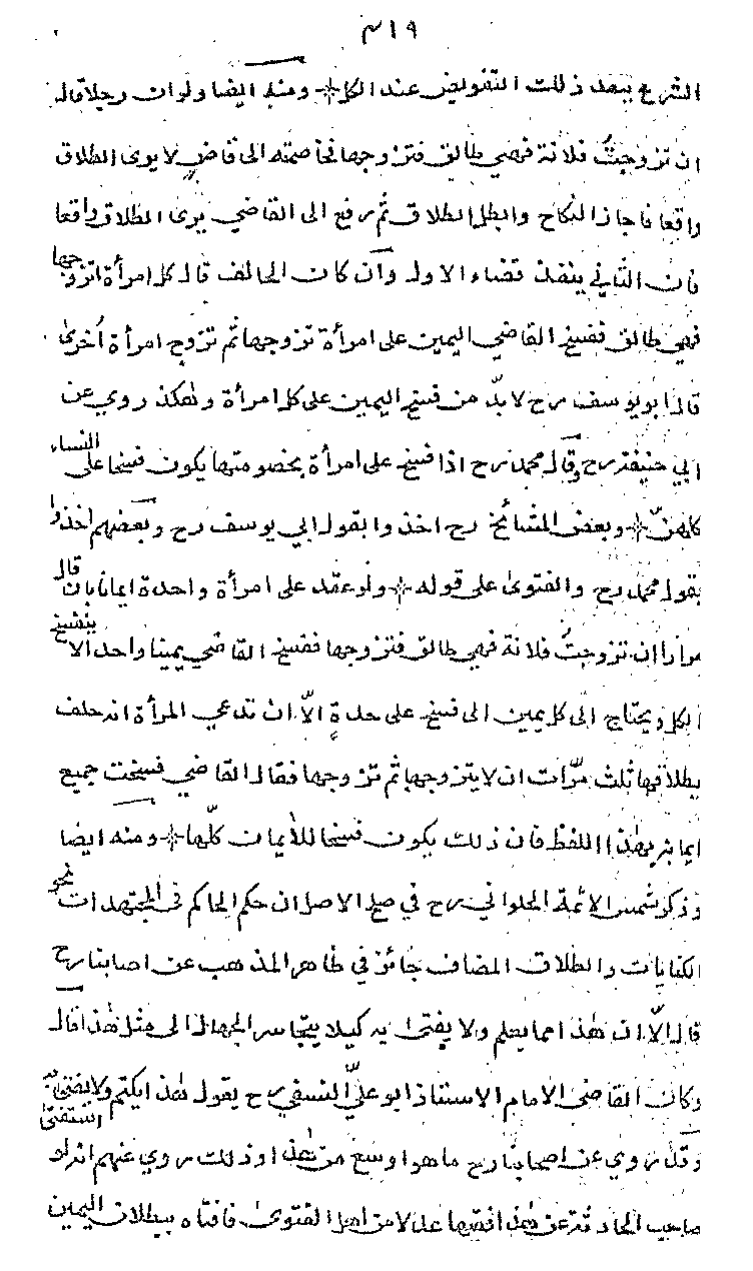 ٣١٩
الشرع بعد ذلك التفويض عند الكل ومنه ايضا ولو ان رجلا قال
ان تزوجتُ فلانة فهي طالق فتزوجها فخاصمته الى قاض لا يرى الطلاق
واقعا فاجاز النكاح وابطل الطلاق ثم رفع الى القاضي يرى الطلاق واقعا
فان الثاني ينفذ قضاء الاول وان كان الحالف قال كل امرأة اتزوجها
فهي طالق ففسخ القاضي اليمين على امرأة تزوجها ثم تزوج امرأة اُخرىٰ
قال ابو يوسف رح لا بدّ من فسخ اليمين على كل امرأة وهٰكذا روي عن
ابي حنيفة رح وقال محمد رح اذا فسخ على امرأة بخصومتها يكون فسخا على النساء
كلهنّ وبعض المشائخ رح اخذوا بقول ابي يوسف رح وبعضهم اخذوا
بقول محمد رح والفتوىٰ على قوله ولو عقد على امرأة واحدة ايمانا بان قال
مرارا ان تزوجتُ فلانة فهي طالق فتزوجها ففسخ القاضي يمينا واحدا لا ينفسخ
الكل ويحتاج الى كل يمين الى فسخ على حدةٍ الّا ان تدعي المرأة انه حلف
بطلاقها ثلث مرّات ان لا يتزوجها ثم تزوجها فقال القاضي فسخت جميع
ايمانه بهٰذا اللفظ فان ذلك يكون فسخا للأيمان كلّها ومنه ايضا
وذكر شمس الائمة الحلواني رح في صلح الاصل ان حكم الحاكم في المجتهدات نحو
الكنايات والطلاق المضاف جائز في ظاهر المذهب عن اصحابنا رح
قال الّا ان هٰذا مما يعلم ولا يفتىٰ به كيلا يتجاسر الجهال الى مثل هٰذا قال
وكان القاضي الامام الاستاذ ابو عليّ النسفي رح يقول هٰذا يكتم ولا يفتىٰ به
وقد روي عن اصحابنا رح ما هو اوسع من هٰذا وذلك روي عنهم انه لو استفتىٰ
صاحب الحادثة عن هٰذا فقيها عدلا من اهل الفتوىٰ فافتاه ببطلان اليمين